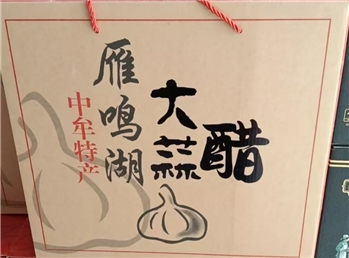 中牟特产
雁鸣湖
大蒜醋